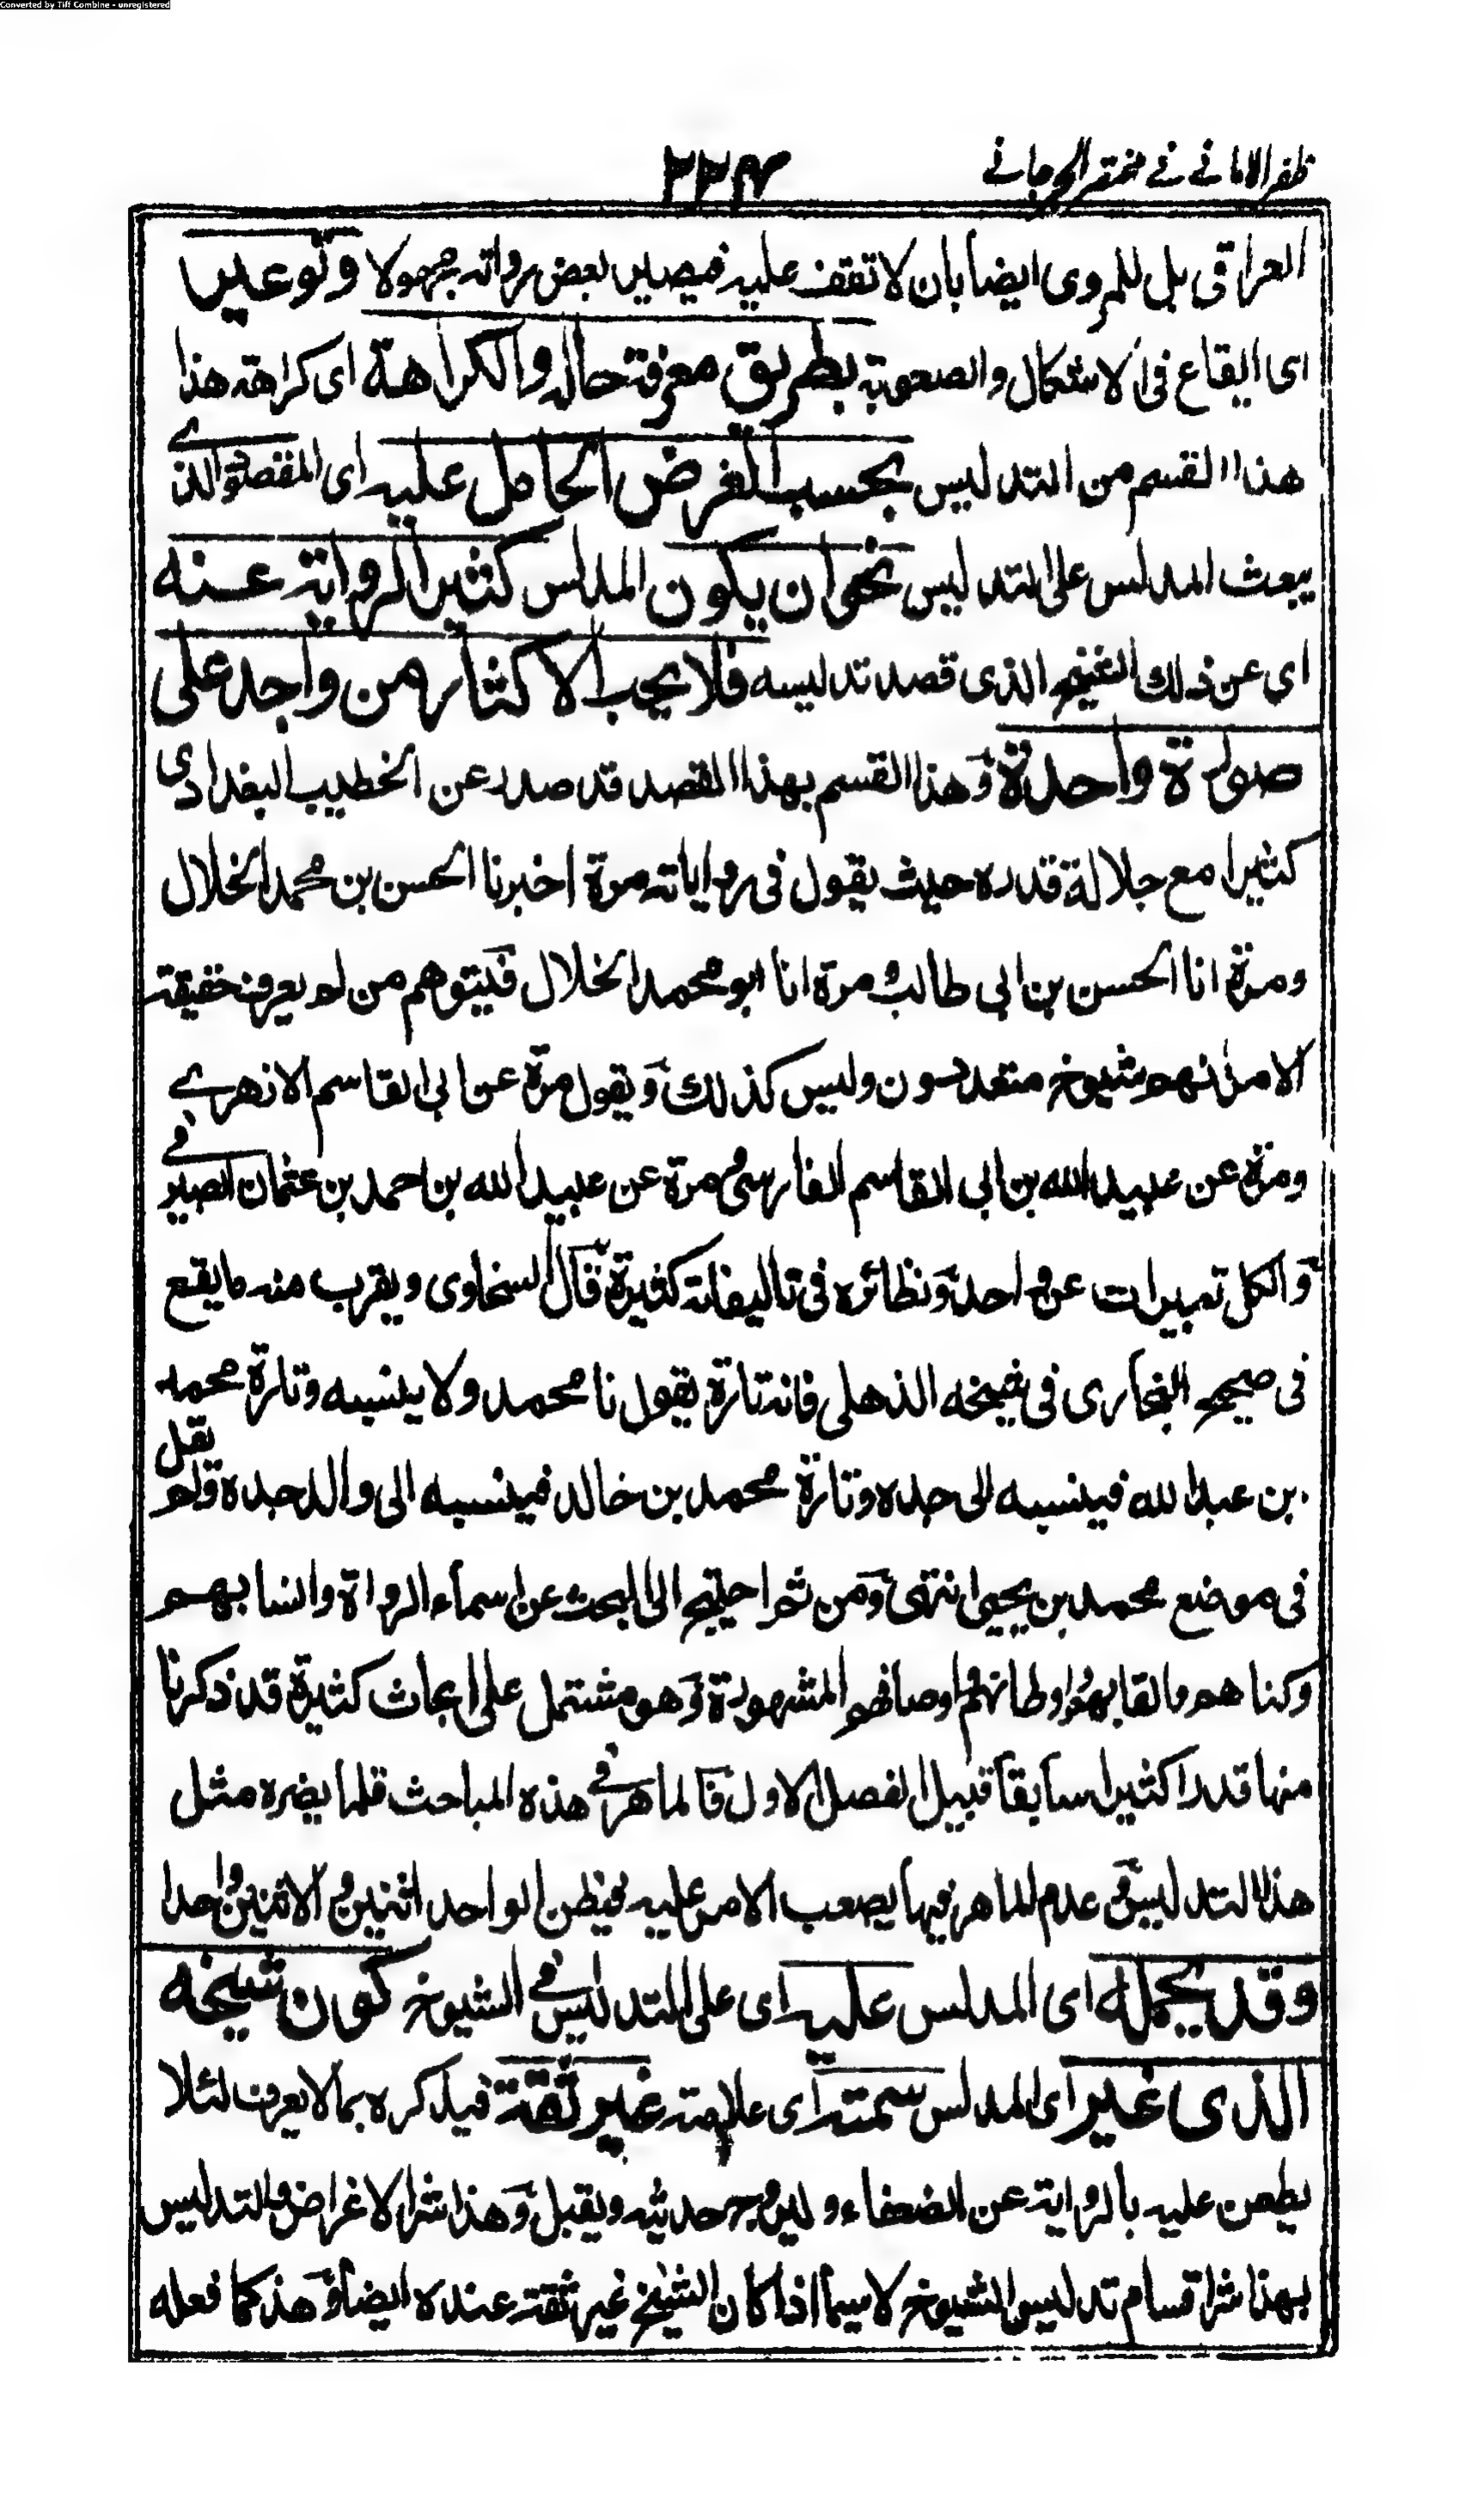 Converted by Tiff Combine - unregistered
ظفر الامانے فے مختصر الجرجانے
۲۲۴
العراقى بل للمروى ايضا بان لا تقف عليه فيصير بعض رواته مجهولا وتوعير
اى ايقاع فى الاشكال والصعوبة بطريق معرفة حاله والكراهة اى كراهة هذا
هذا القسم من التدليس بحسب الغرض الحامل عليه اى المقصود الذے
يبعث المدلس على التدليس نحو ان يكون المدلس كثير الرواية عنه
اى عن ذلك الشيخ الذى قصد تدليسه فلا يحب الاكثار من واحد على
صورة واحدة وهذا القسم بهذا القصد قد صدر عن الخطيب البغدادى
كثيرا مع جلالة قدره حيث يقول فى رواياته مرة اخبرنا الحسن بن محمد الخلال
ومرة انا الحسن بن ابى طالب ومرة انا ابو محمد الخلال فيتوهم من لم يعرف حقيقة
الامر انهم شيوخ متعددون وليس كذلك ويقول مرة عن ابى القاسم الازهرے
ومرة عن عبيد الله بن ابى القاسم الفارسى ومرة عن عبيد الله بن احمد بن عثمان الصيرفے
والكل تعبيرات عن واحد ونظائره فى تاليفاته كثيرة قال السخاوى ويقرب منه ما يقع
فى صحيح البخارى فى شيخه الذهلى فانه تارة يقول نا محمد ولا ينسبه وتارة محمد
بن عبد الله فينسبه الى جده وتارة محمد بن خالد فينسبه الى والد جده ولم يقل
فى موضع محمد بن يحيى انتهى ومن ثم احتيج الى البحث عن اسماء الرواة وانسابهم
وكناهم والقابهم واوطانهم واوصافهم المشهورة وهو مشتمل على ابحاث كثيرة قد ذكرنا
منها قدرا كثيرا سابقا قبيل الفصل الاول فالماهر فے هذه المباحث قلما يضره مثل
هذا التدليس وعدم الماهر فيها يصعب الامر عليه فيظن الواحد اثنين والاثنين واحدا
وقد يحمله اى المدلس عليه اى على التدليس فے الشيوخ كون شيخه
الذى غير اى المدلس سمته اى علامته غير ثقة فيذكره بما لا يعرف لئلا
يطعن عليه بالرواية عن الضعفاء وليروج حديثه ويقبل وهذا شر الاغراض والتدليس
بهذا شر اقسام تدليس الشيوخ لا سيما اذا كان الشيخ غير ثقة عنده ايضا وهذا كما فعله